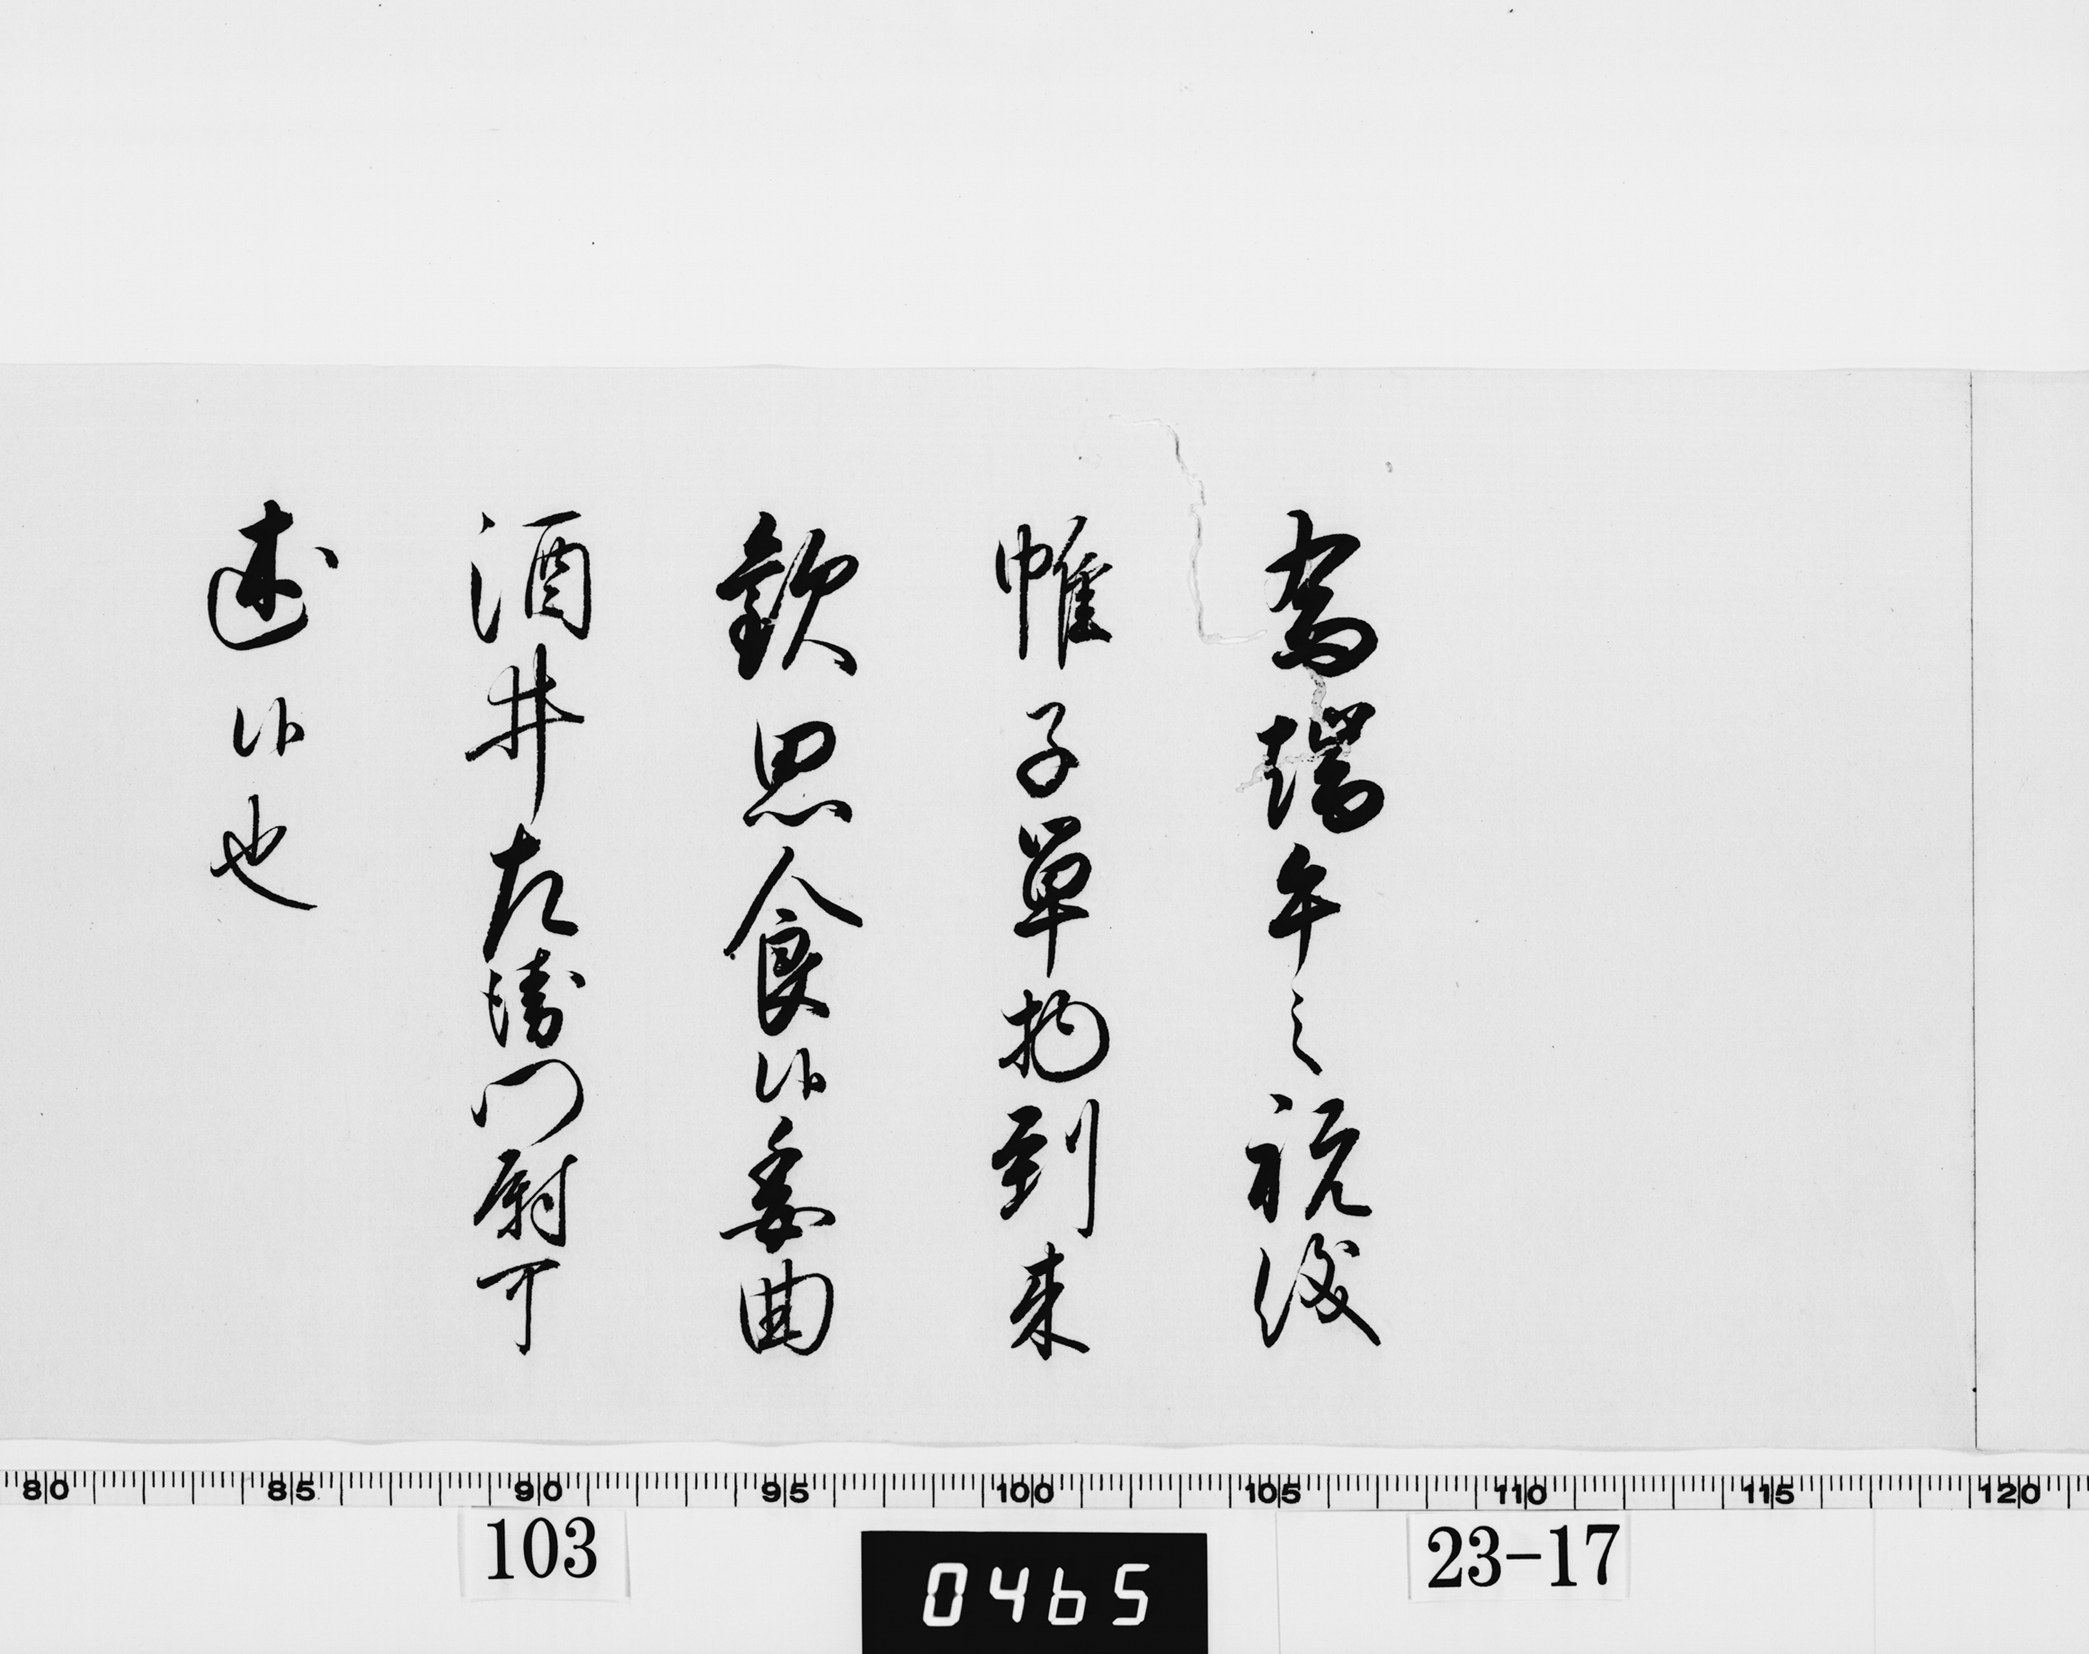 為端午之祝儀
帷子単物到来
歓思食候委曲
酒井左衛門尉可
述候也
80 85 90 95 100 105 110 115 120
103
0465
23-17